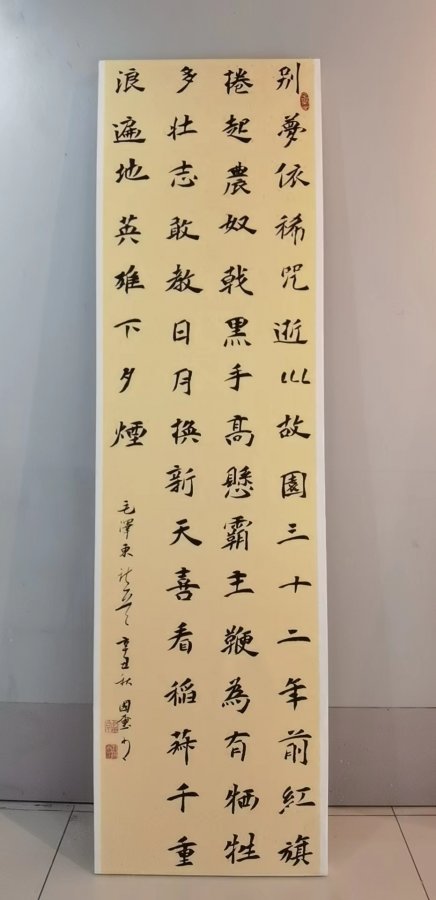 别夢依稀咒逝川故園三十二年前紅旗
捲起農奴戟黑手高懸霸主鞭為有牺牲
多壮志敢教日月換新天喜看稻菽千重
浪遍地英雄下夕煙
毛澤東 辛丑秋